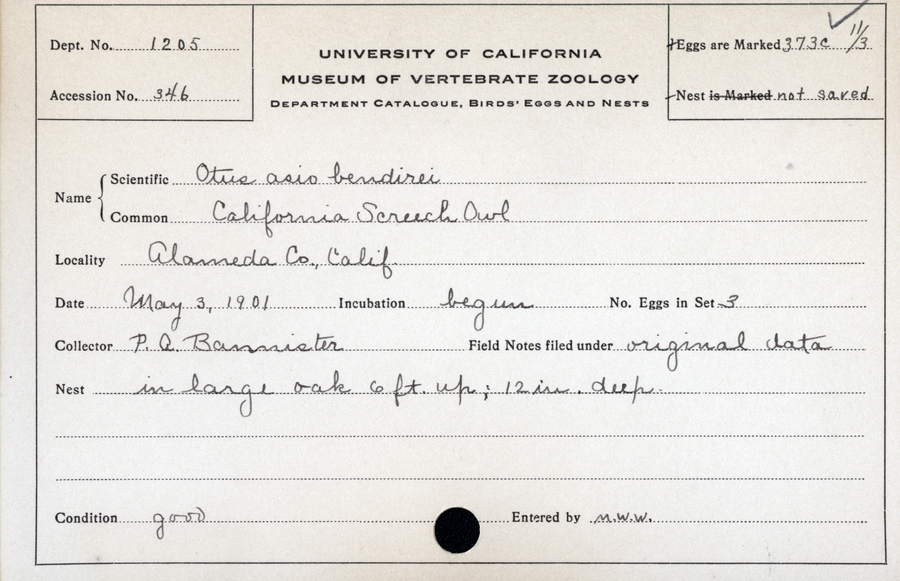 Dept. No. 1205
Accession No. 346
UNIVERSITY OF CALIFORNIA
MUSEUM OF VERTEBRATE ZOOLOGY
DEPARTMENT CATALOGUE, BIRDS' EGGS AND NESTS
Eggs are Marked 373c 11/3
Nest is Marked not saved
Name
Scientific Otus asio bendirei
Common California Screech Owl
Locality Alameda Co., Calif.
Date May 3, 1901 Incubation begun No. Eggs in Set 3
Collector P. A. Bannister Field Notes filed under original data
Nest in large oak 6 ft. up; 12 in. deep.
Condition good Entered by M.W.W.